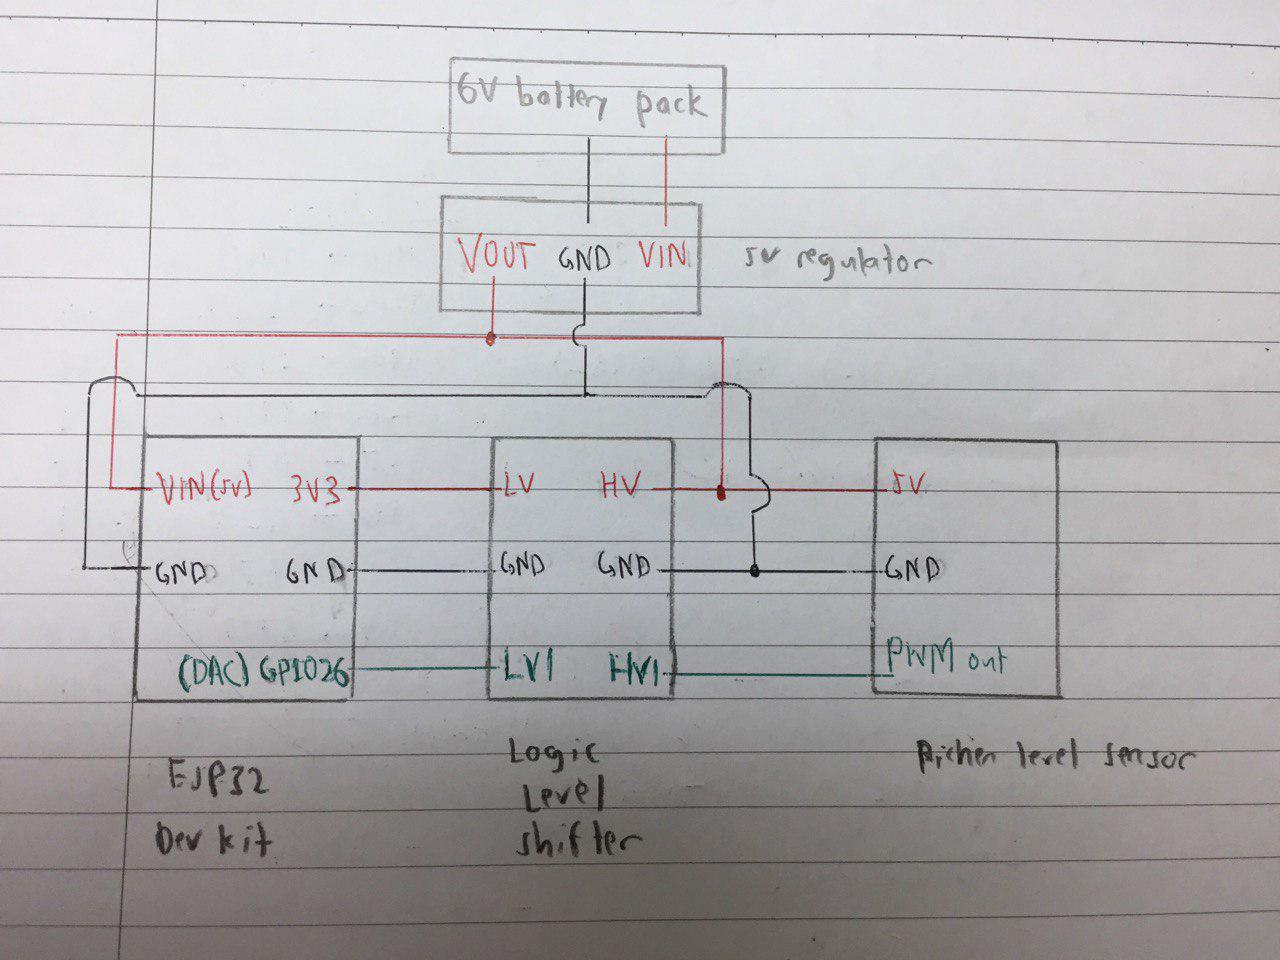 6V battery pack
VOUT GND VIN
5V regulator
VIN(5V) 3V3
LV HV
5V
GND GND
GND GND
GND
(DAC) GPIO26
LV1 HV1
PWM out
ESP32
Dev kit
Logic
Level
shifter
level sensor